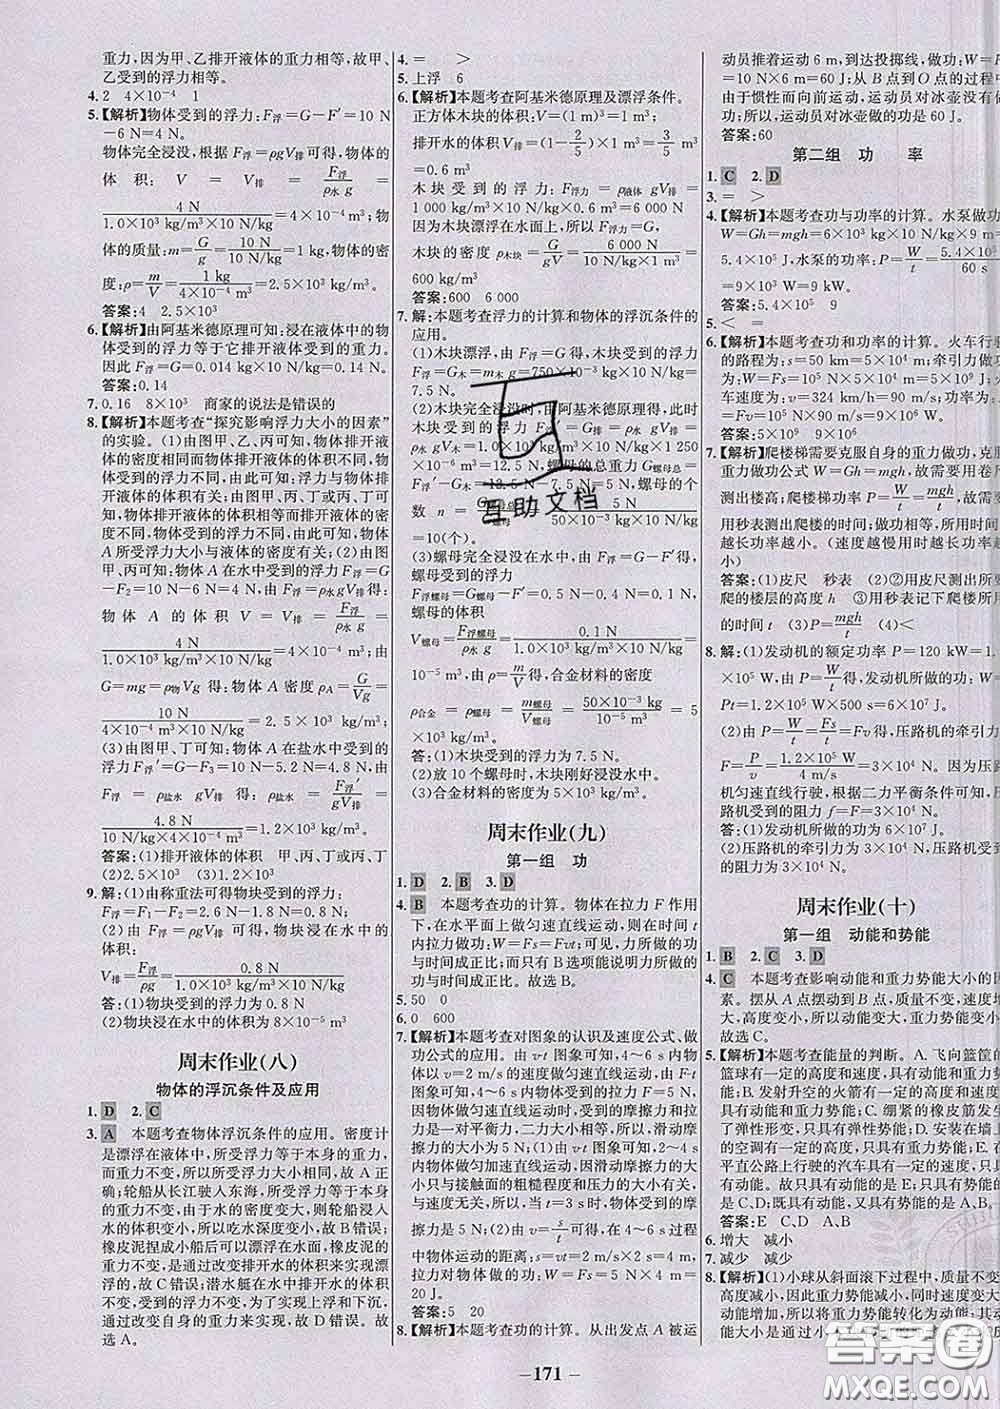 重力,因为甲、乙排开液体的重力相等,故甲、
乙受到的浮力相等。
4. 2 4×10⁻⁴ 1
5.【解析】物体受到的浮力:F浮=G-F′=10 N
-6 N=4 N。
物体完全浸没,根据 F浮=ρgV排可得,物体
的 体 积: V = V排 = F浮/(ρ水 g) =
4 N/(1.0×10³ kg/m³×10 N/kg)=4×10⁻⁴ m³;物
体的质量:m=G/g=10 N/(10 N/kg)=1 kg,物体的密
度:ρ=m/V=1 kg/(4×10⁻⁴ m³)=2.5×10³ kg/m³。
答案:4 2.5×10³
6.【解析】由阿基米德原理可知:浸在液体中的物
体受到的浮力等于它排开液体受到的重力。
因此 F浮=G排=m排g=0.014 kg×10 N/kg=0.14 N。
答案:0.14
7. 0.16 8×10³ 商家的说法是错误的
8.【解析】本题考查“探究影响浮力大小的因素”
的实验。(1)由图甲、乙、丙可知:物体排开液体
的密度相同而物体排开液体的体积不同,
物体受到的浮力不同,因此浮力大小与排开
液体的体积有关;由图甲、丙、丁或丙、丁可
知:物体排开液体的体积相同而排开液体的
密度不同,物体受到的浮力不同,因此物体
A所受浮力大小与液体的密度有关;(2)由图
甲、丙可知:物体A在水中受到的浮力F浮=G
-F₂=10 N-6 N=4 N,由F浮=ρ水gV排得:
物体 A 的体积 V = V排 = F浮/(ρ水 g) =
4 N/(1.0×10³ kg/m³×10 N/kg)=4×10⁻⁴ m³;由
G=mg=ρ物Vg 得:物体A密度ρA=G/(Vg)=
10 N/(4×10⁻⁴ m³×10 N/kg)=2.5×10³ kg/m³;
(3)由图甲、丁可知:物体A在盐水中受到的浮
力F浮′=G-F₃=10 N-5.2 N=4.8 N,由
F浮′=ρ盐水 gV排得:ρ盐水=F浮′/(gV排)=
4.8 N/(10 N/kg×4×10⁻⁴ m³)=1.2×10³ kg/m³。
答案:(1)排开液体的体积 甲、丙、丁或丙、丁
(2)2.5×10³ (3)1.2×10³
9. 解:(1)由称重法可得物块受到的浮力:
F浮=F₁-F₂=2.6 N-1.8 N=0.8 N。
(2)由F浮=ρgV排可得物块浸在水中的
体积:
V排=F浮/(ρg)=0.8 N/(1.0×10³ kg/m³×10 N/kg)=
8×10⁻⁵ m³。
答:(1)物块受到的浮力为0.8 N
(2)物块浸在水中的体积为8×10⁻⁵ m³
周末作业(八)
物体的浮沉条件及应用
1. D 2. C
3. A 本题考查物体浮沉条件的应用。密度计
是漂浮在液体中,所受浮力等于本身的重力,
而重力不变,所以所受浮力不变,故A正
确;轮船从长江驶入东海,所受浮力等于本身
的重力不变,由于水的密度变大,则轮船浸入
水的体积变小,所以吃水深度变小,故B错误;
橡皮泥捏成小船后可以漂浮在水面,橡皮泥
是通过改变排开水的体积来实现漂浮的,故C错误;潜水艇在水中排开水的体积
不变,受到的浮力不变,为了实现上浮和下沉,
通过改变自身的重力来实现,故D错误。故
选A。
4. = >
5. 上浮 6
6.【解析】本题考查阿基米德原理及漂浮条件。
正方体木块的体积:V=(1 m)³=1 m³;
排开水的体积V排=(1-2/5)×1 m³=3/5×1 m³
=0.6 m³
木块受到的浮力:F浮力=ρ液体 gV排=
1 000 kg/m³×10 N/kg×0.6 m³=6 000 N
因为木块漂浮在水面上,所以 F浮力=G,
木块的密度 ρ木块=G/(gV)=6 000 N/(10 N/kg×1 m³)=
600 kg/m³
答案:600 6 000
7. 解:本题考查浮力的计算和物体的浮沉条件的
应用。
(1)木块漂浮,由 F浮=G得,木块受到的浮力
F浮=G木=m木g=750×10⁻³ kg×10 N/kg=
7.5 N。
(2)木块完全浸没时,由阿基米德原理得,此时
木块受到的浮力 F浮′=G排=ρ水 gV排=
ρ水 gV木=1.0×10³ kg/m³×10 N/kg×1 250
×10⁻⁶ m³=12.5 N,螺母的总重力G螺母总=
F浮′-G木=12.5 N-7.5 N=5 N,螺母的个
数 n = G螺母总/G螺母 = 5 N/(50×10⁻³ kg×10 N/kg)
=10(个)。
(3)螺母完全浸没在水中,由 F浮=G-F′得,
螺母受到的浮力
F浮螺母=G螺母-F′=0.5 N-0.4 N=0.1 N,
螺母的体积
V螺母=F浮螺母/(ρ水 g)=0.1 N/(1.0×10³ kg/m³×10 N/kg)
=10⁻⁵ m³,由ρ=m/V得,合金材料的密度
ρ合金 = ρ螺母 = m螺母/V螺母 = 50×10⁻³ kg/10⁻⁵ m³ = 5
×10³ kg/m³。
答:(1)木块受到的浮力为7.5 N。
(2)放10个螺母时,木块刚好浸没水中。
(3)合金材料的密度为5×10³ kg/m³。
周末作业(九)
第一组 功
1. D 2. B 3. D
4. B 本题考查功的计算。物体在拉力 F 作用
下,在水平面上做匀速直线运动,则在时间 t
内拉力做功:W=Fs=Fvt;可见,力所做的功
与时间成正比,而只有B选项能说明力所做的
功与时间成正比。故选B。
5. 50 0
6. 0 600
7.【解析】本题考查对图象的认识及速度公式、做
功公式的应用。由v-t图象可知,4~6 s内物体
以2 m/s的速度做匀速直线运动,由F-t
图象可知,4~6 s内物体受到的拉力F=5 N,
因物体做匀速直线运动时受到的摩擦力和拉
力是一对平衡力,大小相等,所以,滑动摩擦力
的大小为5 N;(1)由v-t图象可知,2~4 s内
物体做加速运动,因滑动摩擦力的大
小只与接触面的粗糙程度和压力的大小有关,
与速度无关,所以,当t=3 s时,物体受到的摩
擦力是5 N;(2)由v=s/t可得,在4~6 s过程
中物体运动的距离:s=vt=2 m/s×2 s=4 m,
拉力对物体做的功:W=Fs=5 N×4 m=
20 J。
答案:5 20
8.【解析】本题考查功的计算。从出发点A被运
动员推着运动6 m,到达投掷线,做功:W=Fs
=10 N×6 m=60 J;从B点到O点的过程中
由于惯性而向前运动,运动员对冰壶没做
功;所以,运动员对冰壶做的功是60 J。
答案:60
第二组 功 率
1. C 2. D
3. = >
4.【解析】本题考查功与功率的计算。水泵做功
W=Gh=mgh=6×10³ kg×10 N/kg×9 m=
5.4×10⁵ J,水泵的功率:P=W/t=5.4×10⁵ J/60 s
=9×10³ W=9 kW。
答案:5.4×10⁵ 9
5. < =
6.【解析】本题考查功和功率的计算。火车行驶
的路程为:s=50 km=5×10⁴ m;牵引力做功
为:
车速度为v=324 km/h=90 m/s;功率
=Fv=1×10⁵ N×90 m/s=9×10⁶ W。
答案:5×10⁹ 9×10⁶
7.【解析】爬楼梯需要克服自身的重力做功,克服
重力做功公式 W=Gh=mgh,故需要用卷尺
测出楼高;爬楼梯功率 P=W/t=mgh/t,所以
用秒表测出爬楼的时间;做功相等,所用时间
越长功率越小。(速度越慢用时越长功率越
小)
答案:(1)皮尺 秒表 (2)②用皮尺测出所要
爬的楼层的高度h ③用秒表记下爬楼所用
的时间t (3)P=mgh/t (4)<
8. 解:(1)发动机的额定功率 P=120 kW=1.2
×10⁵ W,由P=W/t得,发动机所做的功:W=
Pt=1.2×10⁵ W×500 s=6×10⁷ J。
(2)由P=W/t=Fs/t=Fv得,压路机的牵引力
F=P/v=1.2×10⁵ W/4 m/s=3×10⁴ N。因为压路
机匀速直线行驶,根据二力平衡条件可知,压
路机受到的阻力f=F=3×10⁴ N。
答:(1)发动机所做的功为6×10⁷ J。
(2)压路机的牵引力为3×10⁴ N,压路机受到
的阻力为3×10⁴ N。
周末作业(十)
第一组 动能和势能
1. B 2. C 3. D
4. C 本题考查影响动能和重力势能大小的因
素。摆从A点摆动到B点,质量不变,速度变
大,高度变小,所以动能变大,重力势能变小。
故选C。
5.【解析】本题考查能量的判断。A.飞向篮筐的
篮球有一定的高度和速度,具有动能和重力势
能;B.发射升空的火箭有一定的高度和速度,
具有动能和重力势能;C.绷紧的橡皮筋发生
了弹性形变,具有弹性势能;D.安装在墙上
的空调有一定高度,只具有重力势能;E.在水
平直公路上行驶的汽车具有一定的速度,只具
有动能。故只具有动能的是E;只具有势能的
是C、D;既具有动能,又具有势能的是A、B。
答案:E C、D A、B
6. 增大 减小
7. 减少 减少
8.【解析】(1)小球从斜面滚下过程中,质量不变,
高度减小,所以重力势能减小,速度增大,
动能增加,所以将重力势能转化为动能;
(2)
–171–
互助文档
答案圈
MXQE.COM